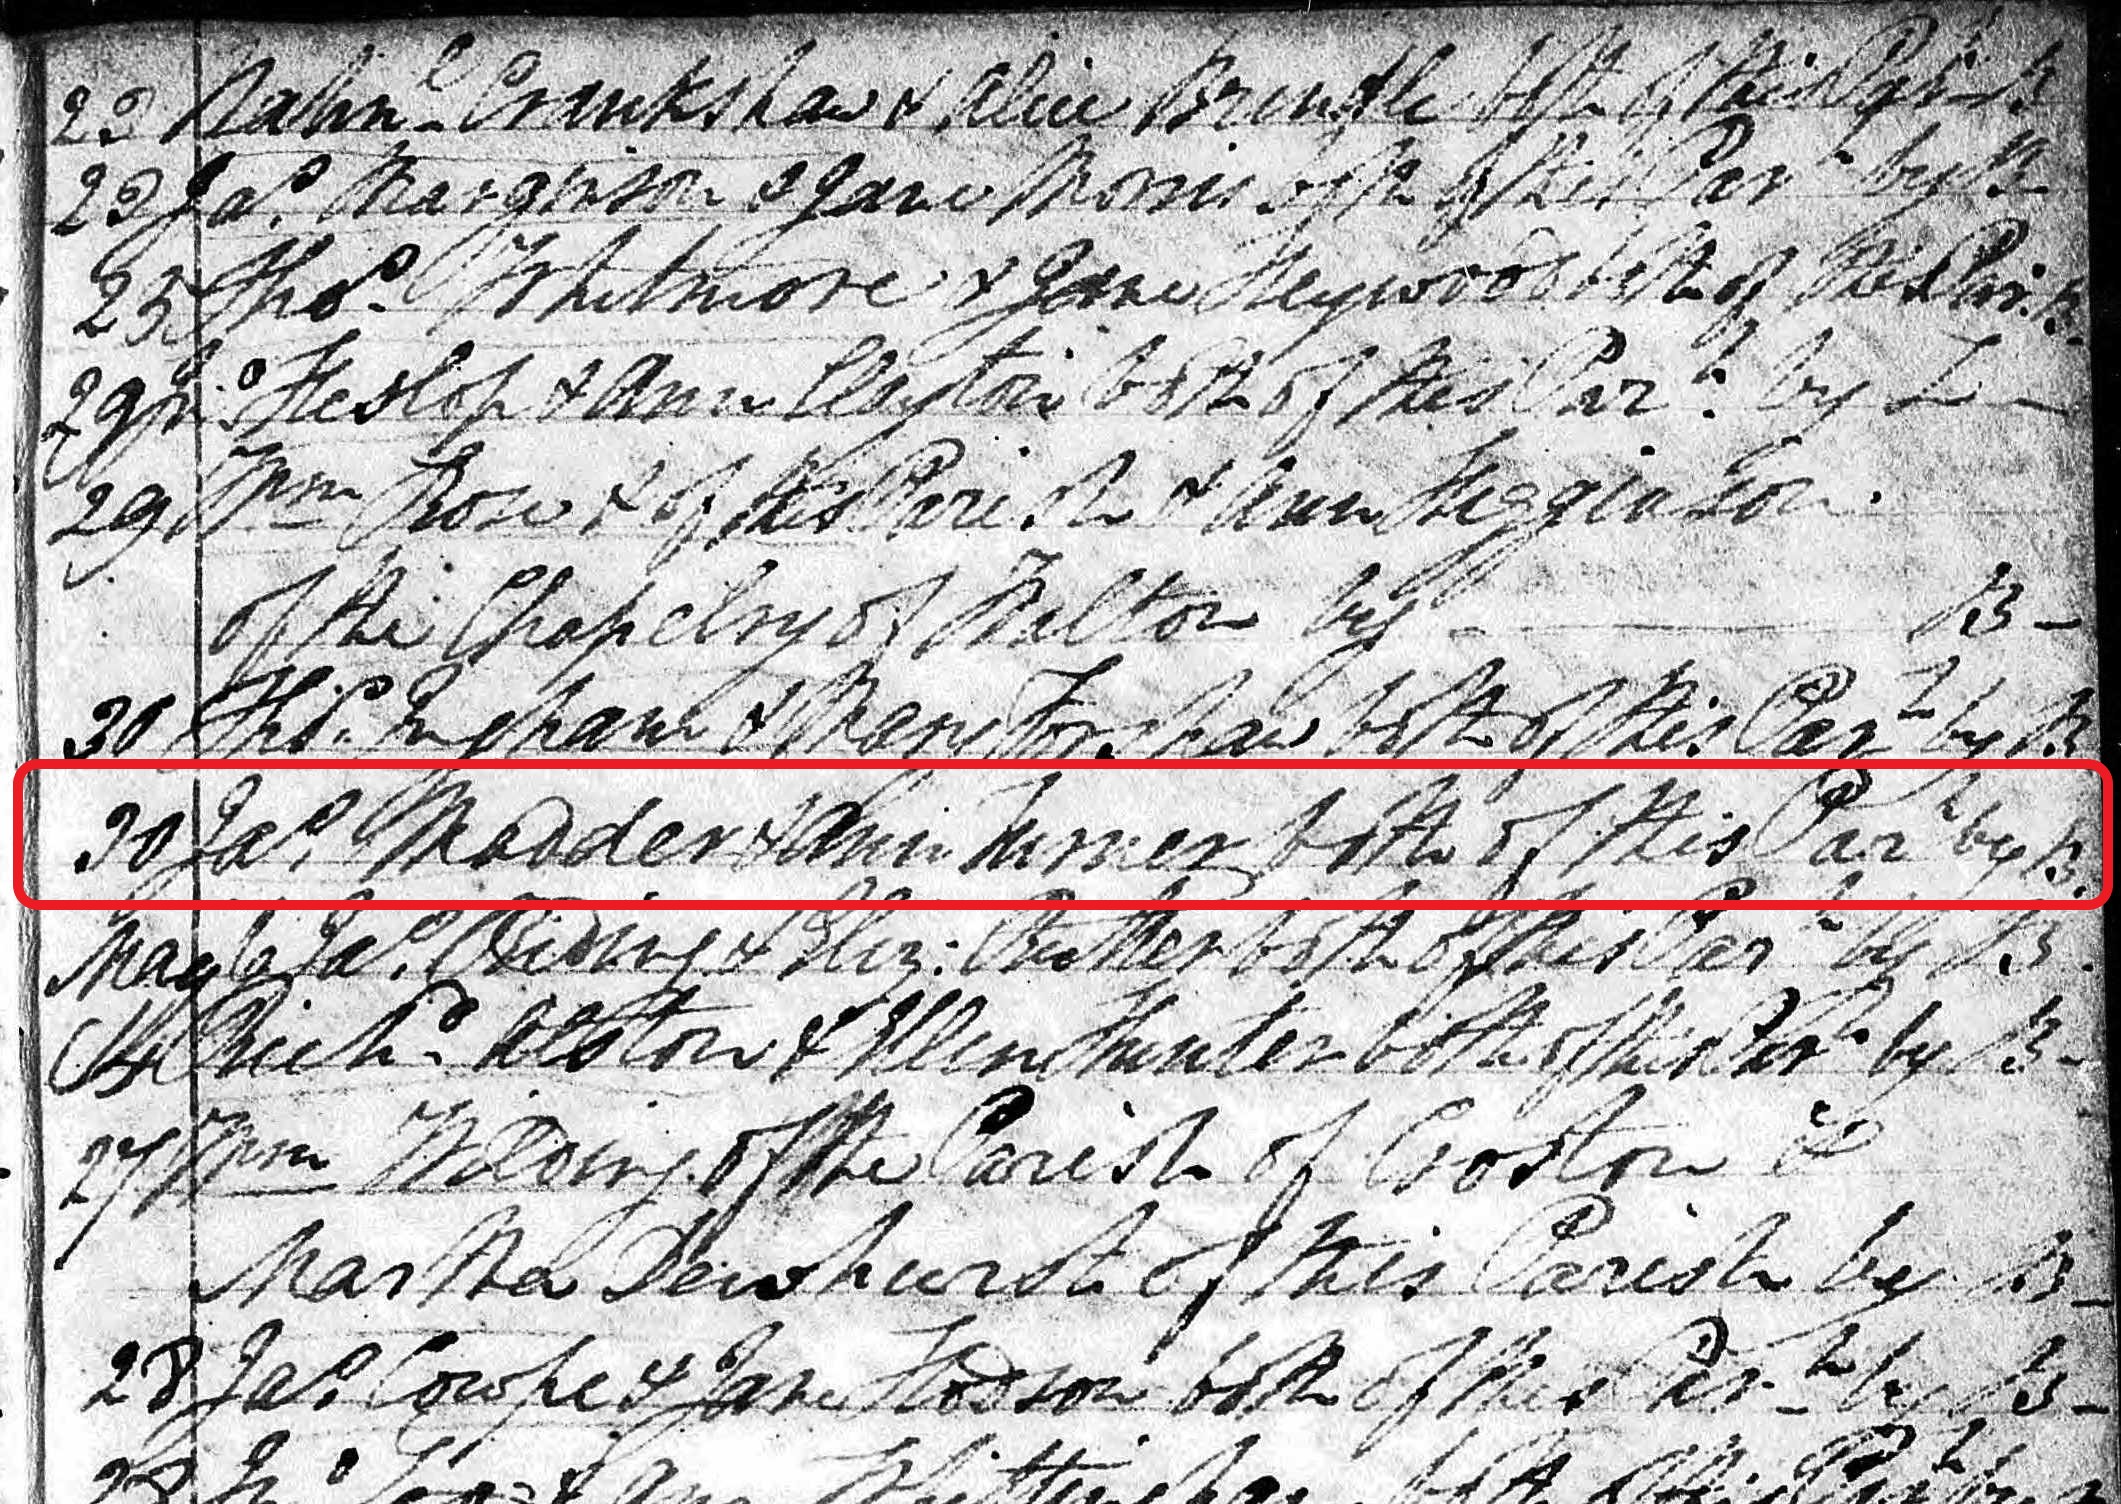 23 Nathn.l Crankshaw & Alice Brindle both of this Par.h B
23 Jas. Margerison & Jane Morris both of this Par.h by B
25 Thos. Whitmore & Jane Heywood both of this Par. B.
29 Jno. Heslop & Ann Clayton both of this Par.h by L
29 Wm Rose & of this Parish & Ann Higginson
of the Chapelry of Walton by B
30 Thos. Ingham & Mary Forshaw both of this Par.h by B
30 Jas. Madder & Ann Turner both of this Par.h by B.
May 6 Jas. Riding & Eliz: both of this Par.h by B.
Richd. Alston & Ellen Hunter both of this Par.h by B
27 Wm Wilding of the Parish of Croston &
Martha Dewhurst of this Parish by B
28 Jas. Cowpe & Jane Hodson both of this Par.h by B
28 Jno. & Ann both of this Par.h by